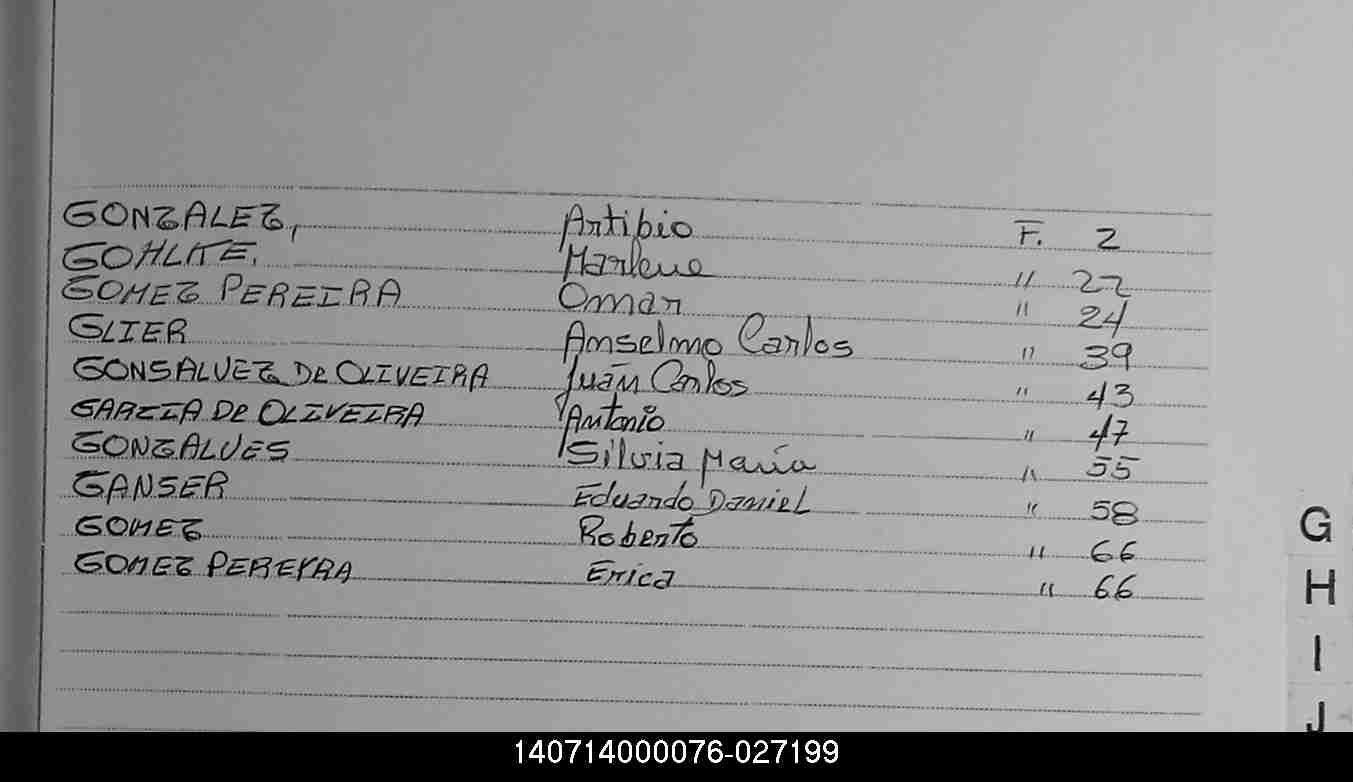 GONZALEZ, Artibio F. 2
GOHLKE, Marlene " 22
GOMEZ PEREIRA Omar " 24
GLIER Anselmo Carlos " 39
GONSALVEZ De OLIVEIRA Juan Carlos " 43
GARZIA De OLIVEIRA Antonio " 47
GONZALVES Silvia María " 55
GANSER Eduardo Daniel " 58
GOMEZ Roberto " 66
GOMEZ PEREYRA Erica " 66
G
H
I
J
140714000076-027199